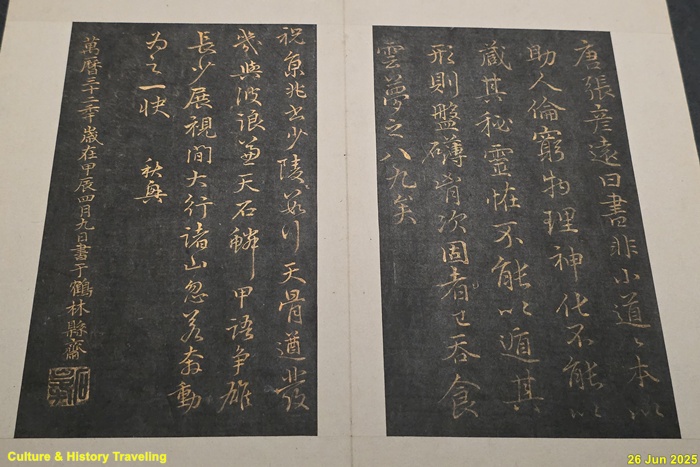 唐張彥遠曰書非小道〻本以
助人倫窮物理神化不能以
藏其秘靈怪不能以遁其
形則盤礡胷次固者已吞食
雲夢之八九矣
祝京兆書少陵天骨遒發
幾與波浪兼天石鱗甲語爭雄
長少展視間大行諸山忽若奔動
為之一快 秋興
萬曆三十二年歲在甲辰四月九日書于鶴林縣齋
Culture & History Traveling
26 Jun 2025